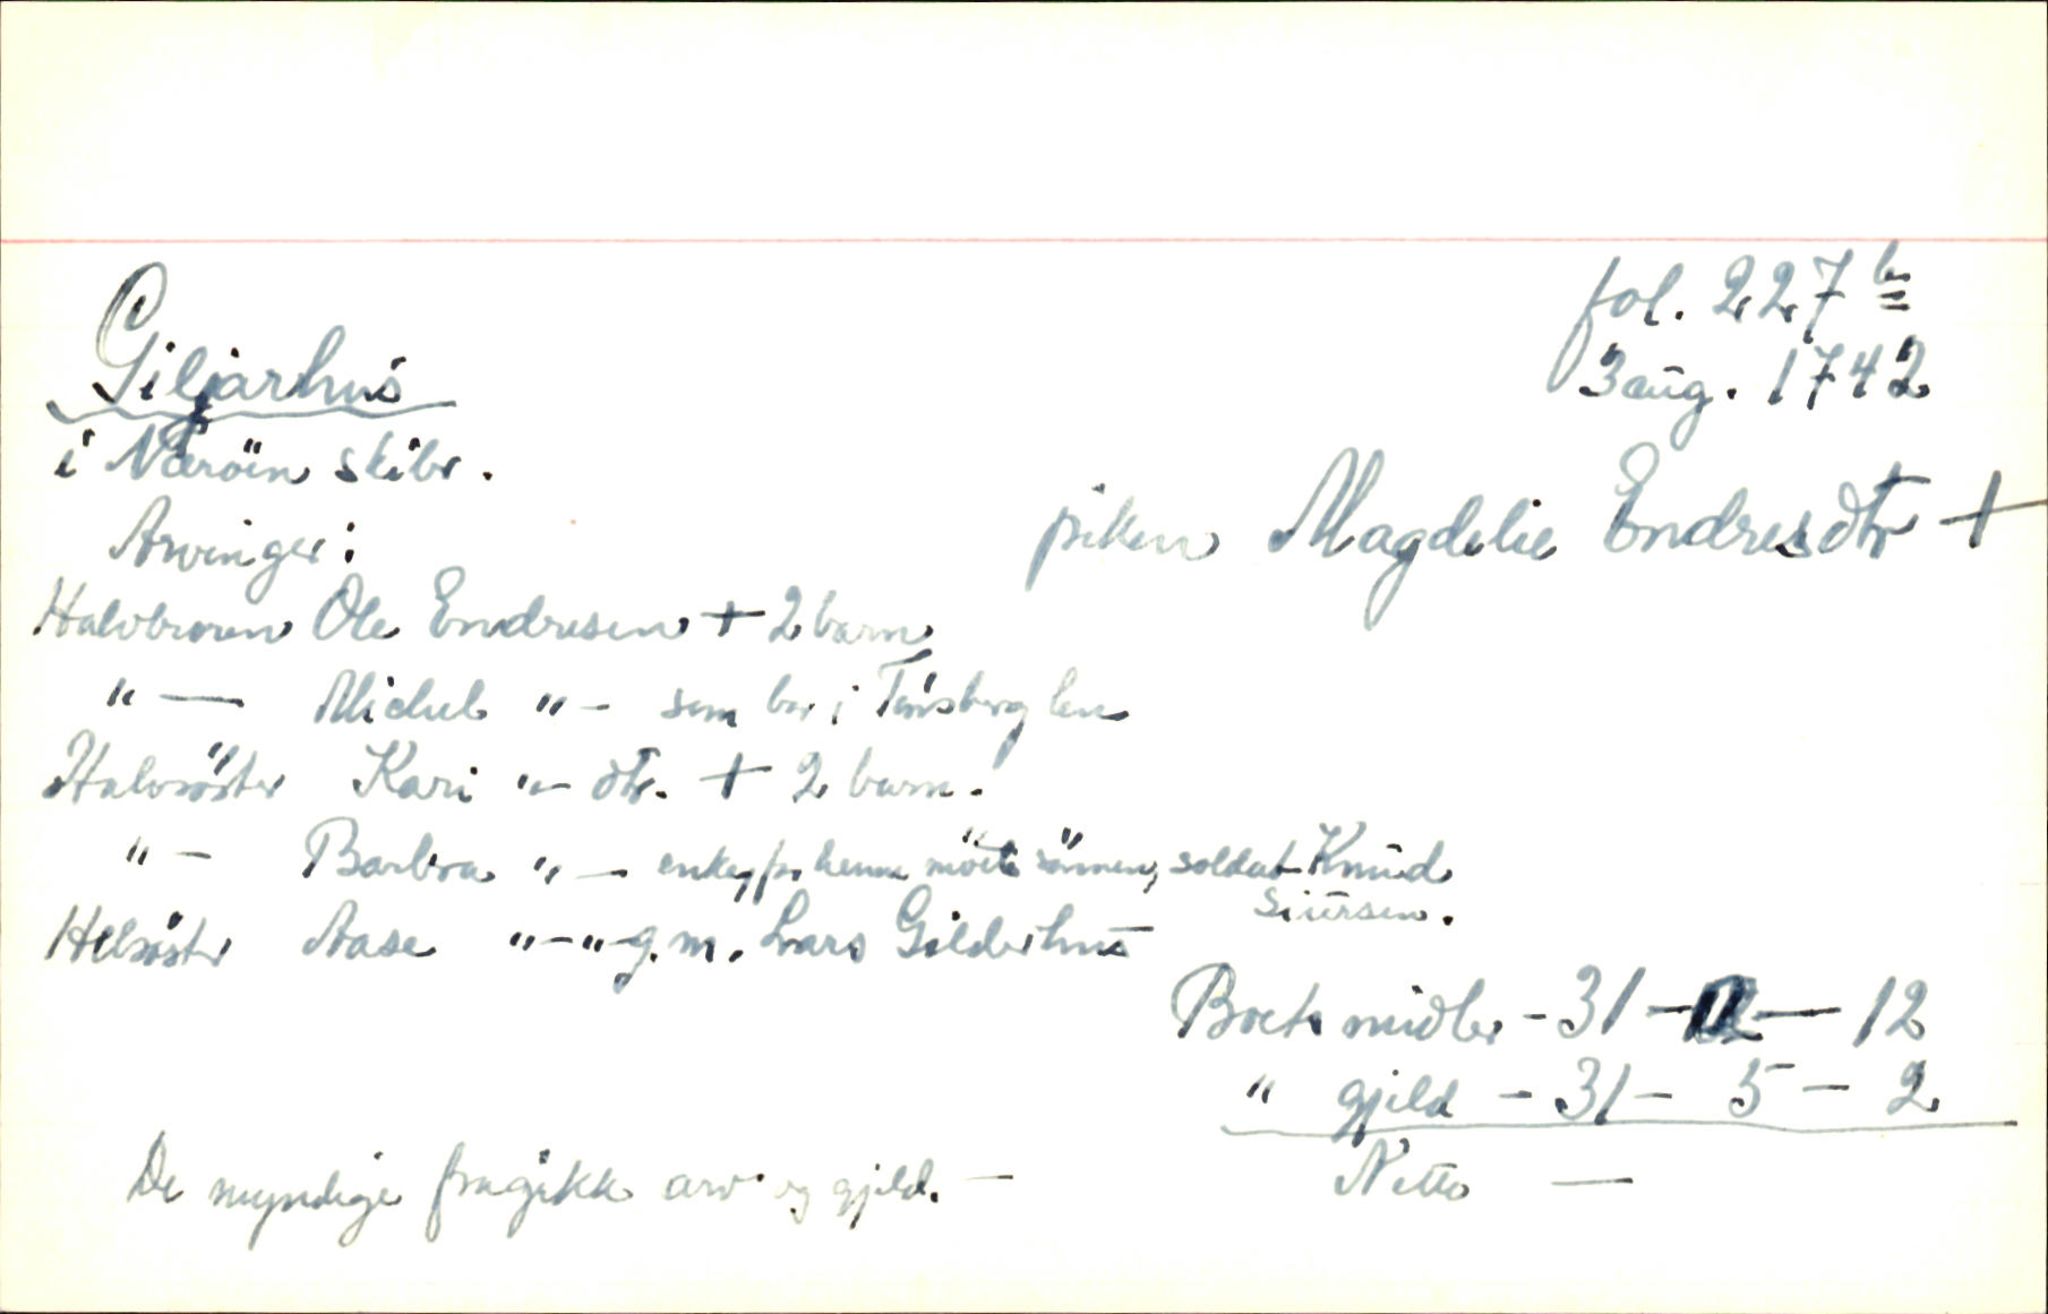 fol. 227 b
3 aug. 1742
Giljarhus
i Næröen skibr.
piken Magdelie Endresdtr +
Arvinger:
Halvbroren Ole Endresen + 2 barn
"— Michel "- som bor i Tönsberg len
Halvsöster Kari "- dtr. + 2 barn.
"- Barbra "- enke, for henne mötte sönnen, soldat Knud
Siursen.
Helsöster Aase "-"- g.m. Lars Gilderhus
Boets midler - 31 - — 12
" gjeld - 31 - 5 - 2
Netto —
De myndige fragikk arv og gjeld. —